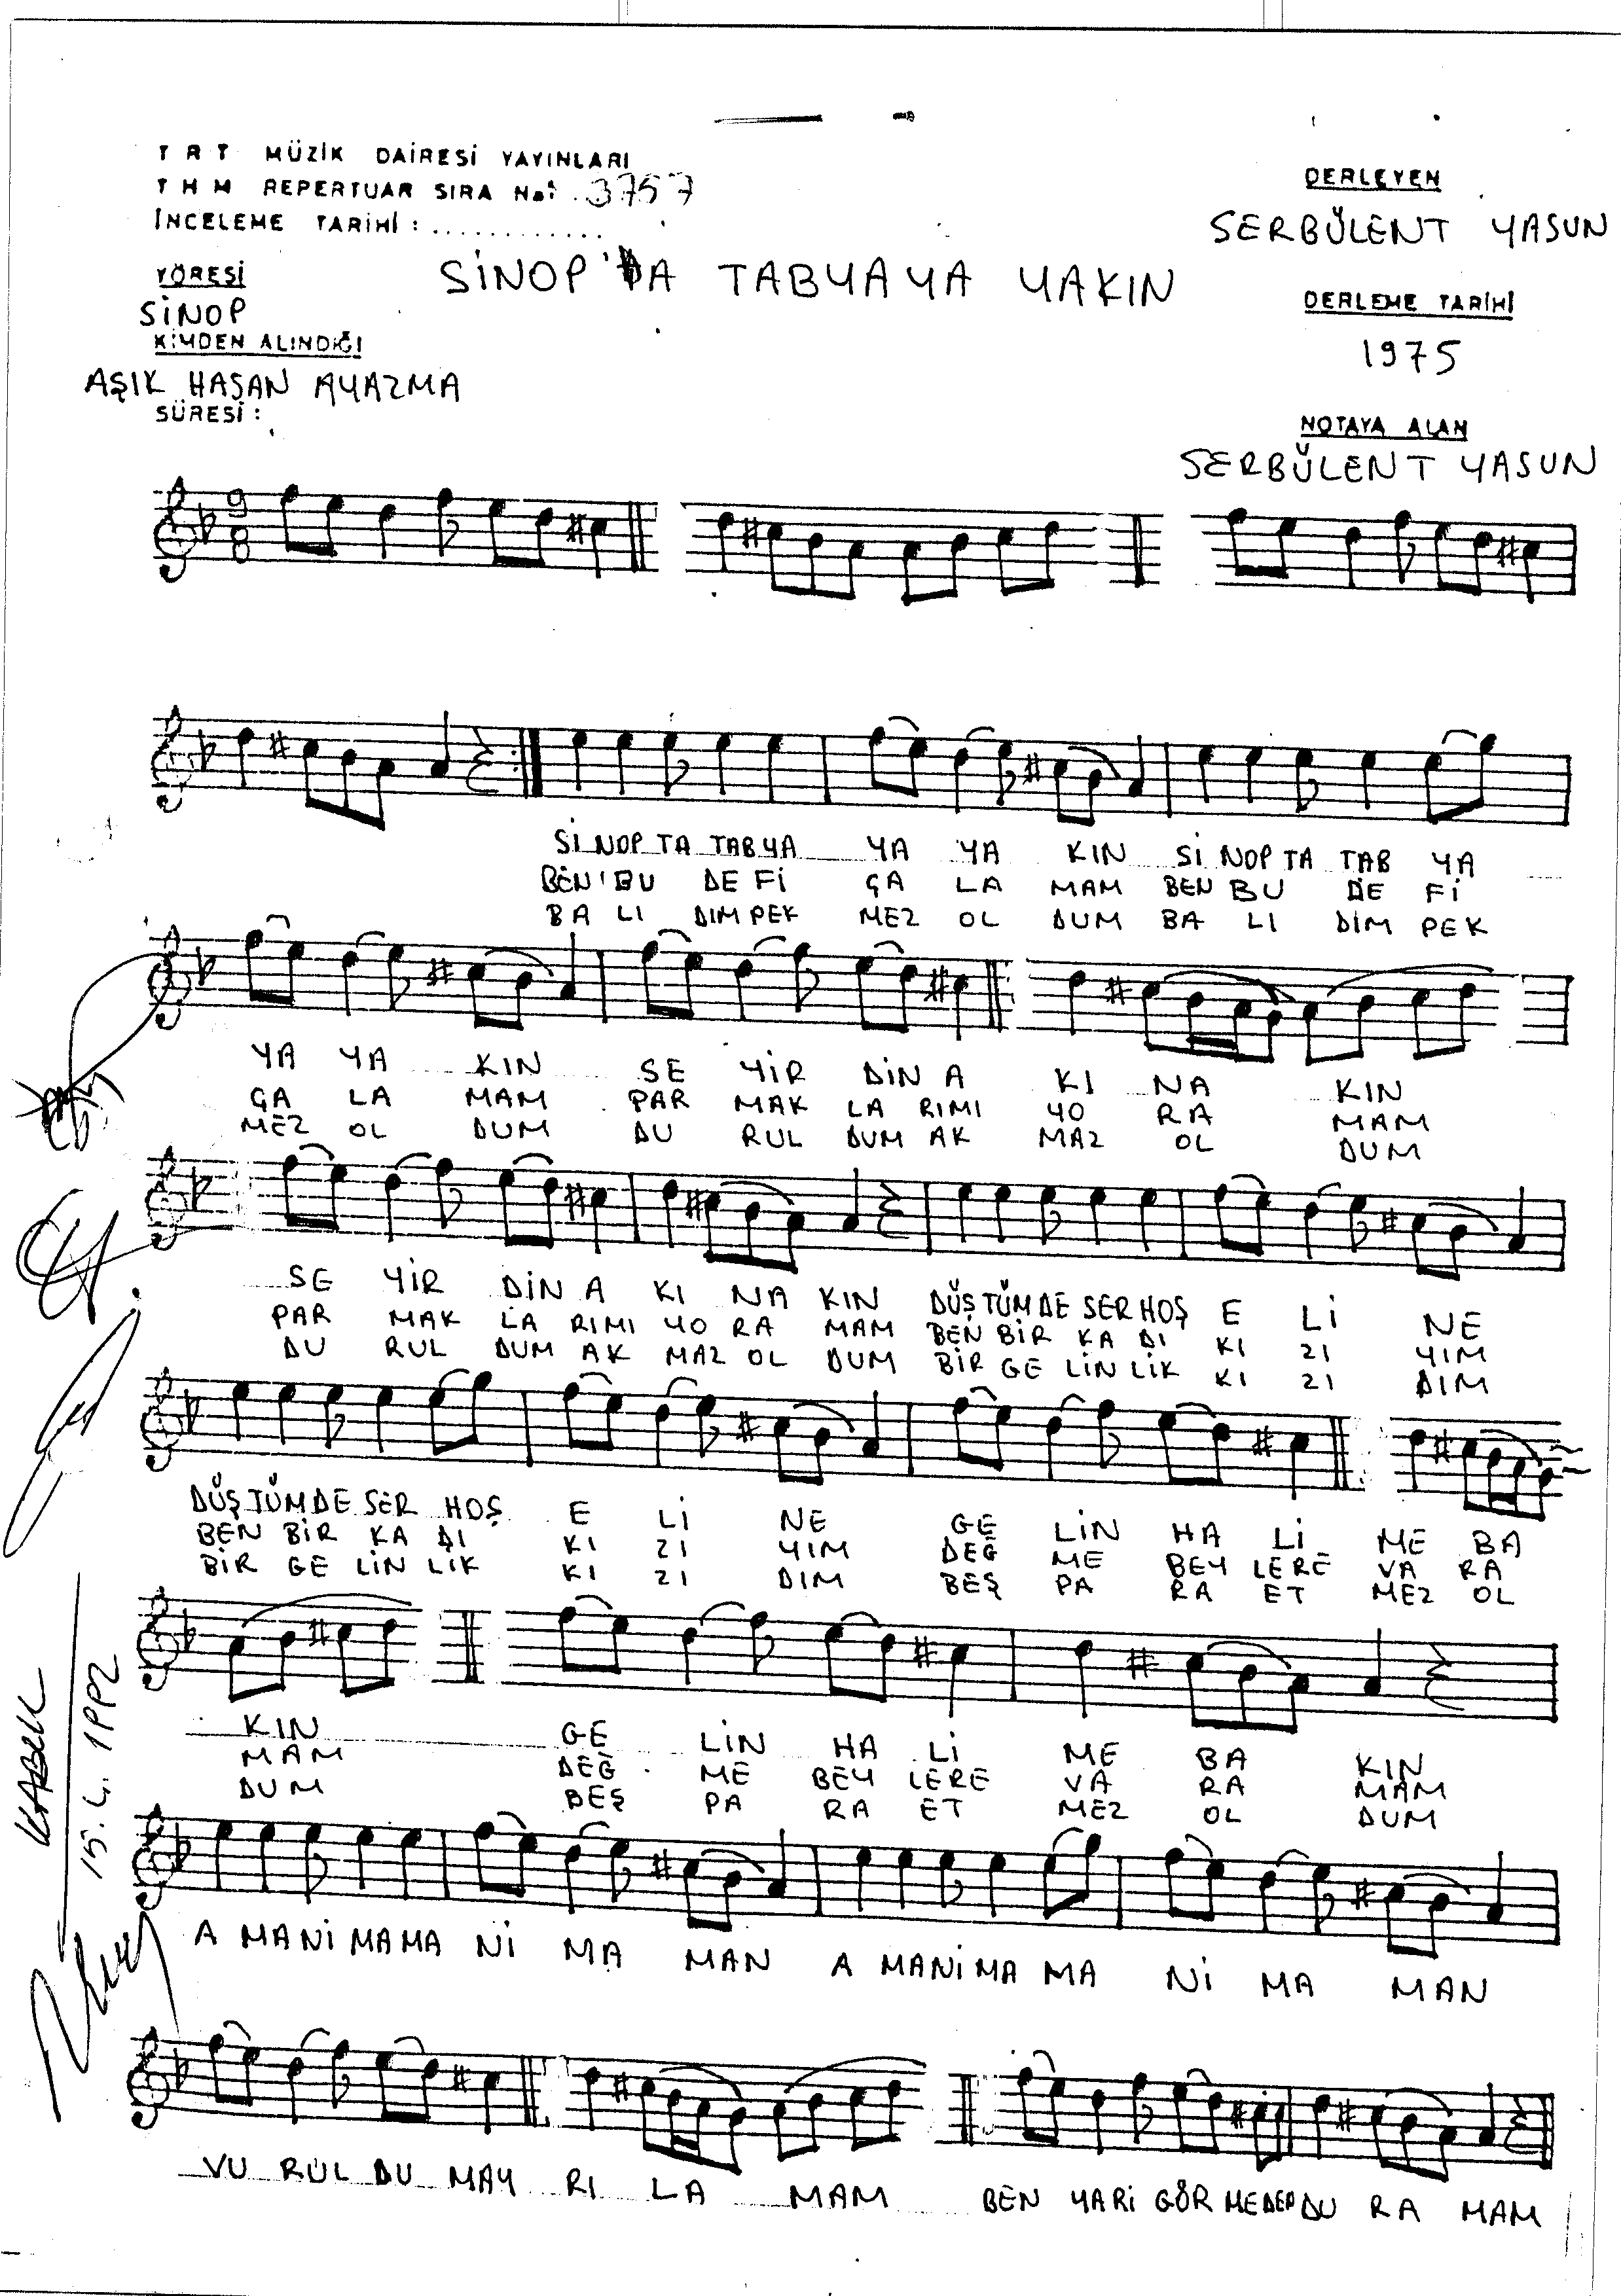 TRT MÜZİK DAİRESİ YAYINLARI
THM REPERTUAR SIRA No: 3757
İNCELEME TARİHİ : ............
YÖRESİ
SİNOP
KİMDEN ALINDIĞI
AŞIK HASAN AYAZMA
SÜRESİ :
SİNOP'DA TABYAYA YAKIN
DERLEYEN
SERBÜLENT YASUN
DERLEME TARİHİ
1975
NOTAYA ALAN
SERBÜLENT YASUN
9
8
Sİ NOP TA TAB YA YA YA KIN Sİ NOP TA TAB YA
BEN BU DE Fİ ÇA LA MAM BEN BU DE Fİ
BA LI DIM PEK MEZ OL DUM BA LI DIM PEK
YA YA KIN SE YİR DİN A KI NA KIN
ÇA LA MAM PAR MAK LA RIMI YO RA MAM
MEZ OL DUM DU RUL DUM AK MAZ OL DUM
SE YİR DİN A KI NA KIN DÜŞ TÜM DE SER HOŞ E Lİ NE
PAR MAK LA RIMI YO RA MAM BEN BİR KA DI KI ZI YIM
DU RUL DUM AK MAZ OL DUM BİR GE LİN LİK KI ZI DIM
DÜŞ TÜM DE SER HOŞ E Lİ NE GE LİN HA Lİ ME BA
BEN BİR KA DI KI ZI YIM DEĞ ME BEY LERE VA RA
BİR GE LİN LİK KI ZI DIM BEŞ PA RA ET MEZ OL
KIN GE LİN HA Lİ ME BA KIN
MAM DEĞ ME BEY LERE VA RA MAM
DUM BEŞ PA RA ET MEZ OL DUM
A MA Nİ MA MA Nİ MA MAN A MA Nİ MA MA Nİ MA MAN
VU RUL DU MAY RI LA MAM BEN YARİ GÖR MEDEN DU RA MAM
KABUL
15.4.1992